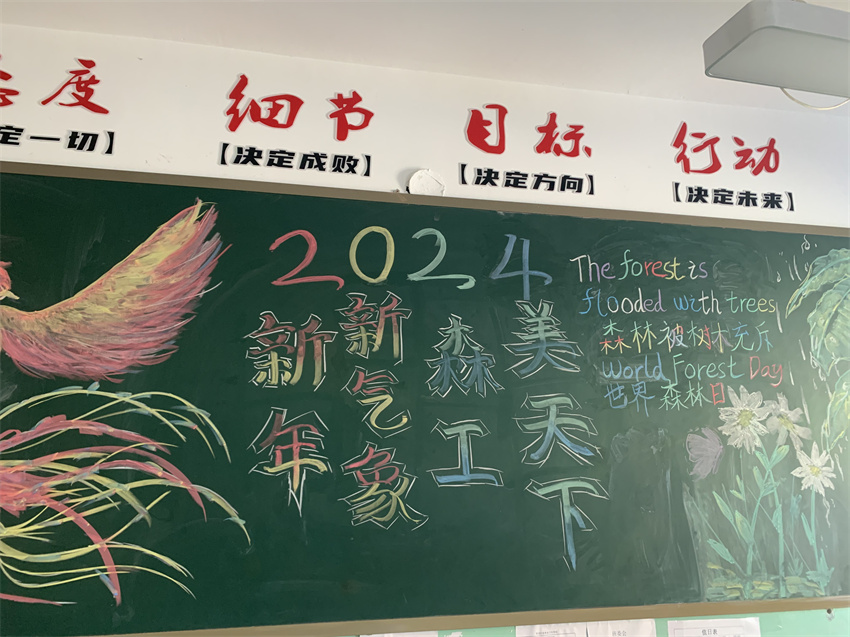 度
细节
目标
行动
定一切】
【决定成败】
【决定方向】
【决定未来】
2024
新年
新气象
森工
美天下
The forest is
flooded with trees
森林被树木充斥
world Forest Day
世界森林日